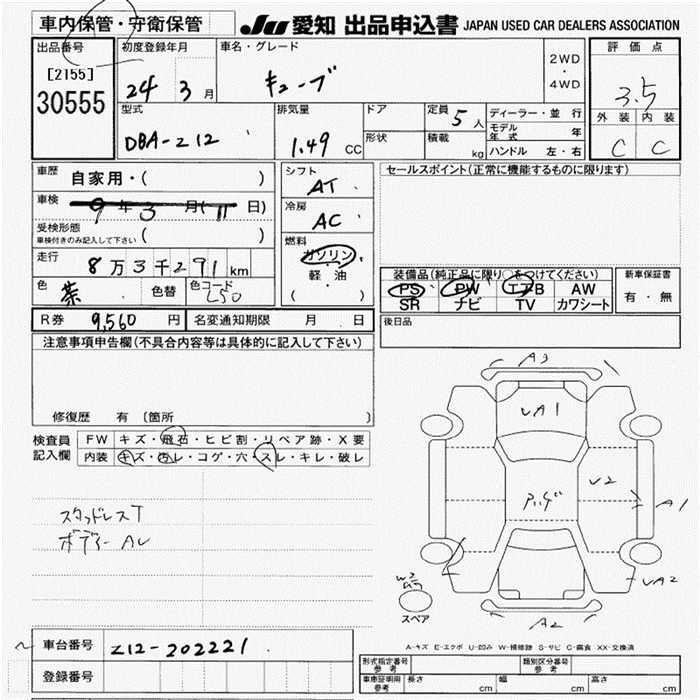 車内保管・守衛保管
JU 愛知 出品申込書 JAPAN USED CAR DEALERS ASSOCIATION
出品番号
[2155]
30555
初度登録年月
24 3 月
車名・グレード
キューブ
2WD
・
4WD
評価点
3.5
外装 内装
C C
型式
DBA-Z12
排気量
1.49 CC
ドア
形状
定員 5 人
積載 kg
ディーラー・並行
モデル年式 年
ハンドル 左・右
車歴 自家用・( )
車検 9 年 3 月( 11 日)
受検形態
車検付きのみ記入して下さい ( )
走行 8万3千291 km
色 茶 色替 色コード L50
シフト
AT
冷房
AC
燃料
ガソリン
・
軽・油
( )
セールスポイント(正常に機能するものに限ります)
装備品(純正品に限り○をつけてください)
PS PW エアB AW
SR ナビ TV カワシート
新車保証書
有・無
R券 9,560 円 名変通知期限 月 日
後日品
注意事項申告欄(不具合内容等は具体的に記入して下さい)
修復歴 有 〔箇所
検査員
記入欄
FW キズ・飛石・ヒビ割・リペア跡・X要
内装 キズ・汚レ・コゲ・穴・スレ・キレ・破レ
スタッドレスT
ボデー AU
A3
UA1
U2
A1
UA2
W3
A2
スペア
A-キズ E-エクボ U-凹み W-補修跡 S-サビ C-腐食 XX-交換済
車台番号 Z12-202221
登録番号
形式指定番号
参考
類別区分番号
参考
車庫証明用
参考
長さ cm 幅 cm 高さ cm